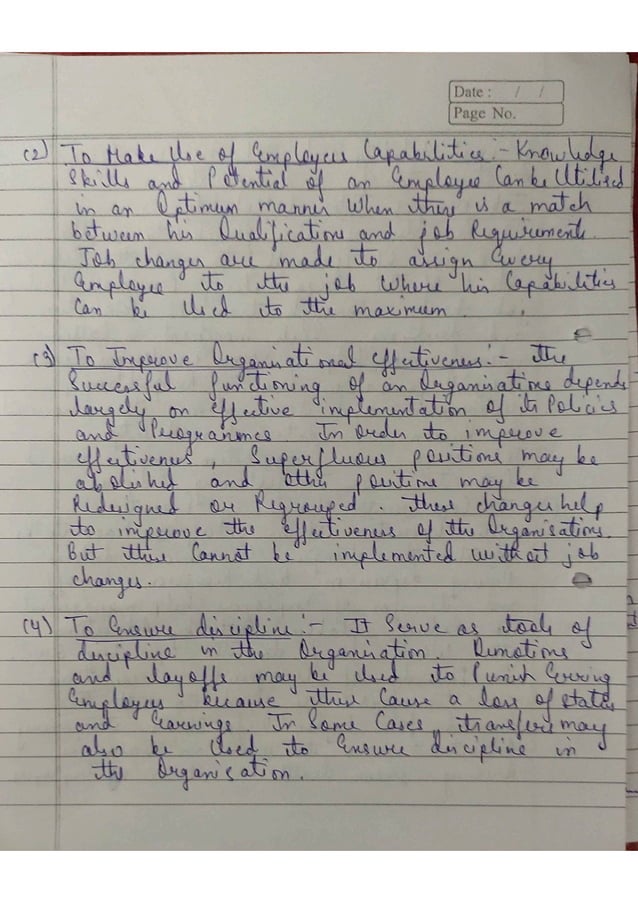 Date :    /    /
Page No.
(2) To Make Use of Employees Capabilities :- Knowledge
Skills and Potential of an Employee Can be Utilised
in an Optimum manner When there is a match
between his Qualifications and job Requirements.
Job changes are made to assign Every
Employee to the job Where his Capabilities
Can be Used to the maximum.
(3) To Improve Organisational effectiveness :- The
Successful functioning of an Organisations depends
largely on effective implementation of its Policies
and Programmes. In Order to improve
effectiveness, Superfluous positions may be
abolished and other positions may be
Redesigned or Regrouped. These changes help
to improve the effectiveness of the Organisations.
But these Cannot be implemented without job
changes.
(4) To Ensure discipline :- It Serve as tools of
discipline in the Organisation. Demotions
and layoffs may be Used to Punish Erring
Employees because these Cause a loss of status
and Earnings. In Some Cases, transfers may
also be Used to Ensure discipline in
the Organisation.